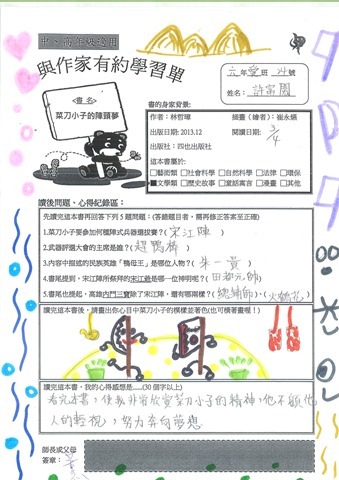 中、高年級適用
與作家有約學習單
六年愛班24號
姓名：許富閔
<書名>
菜刀小子的陣頭夢
書的身家背景：
作者：林哲璋 插畫（繪者）：崔永嬿
出版日期：2013.12 閱讀日期：3/4
出版社：四也出版社
本書屬於：
□藝術類 □社會科學 □自然科學 □法律 □環保
■文學類 □歷史故事 □童話寓言 □漫畫 □其他
讀後問題、心得紀錄區：
先讀完這本書再回答下列5題問題：（答錯題目者，需再修正答案至正確）
1.菜刀小子要參加何種陣式兵器選拔賽？（宋江陣）
2.武器評選大會的主席是誰？（超鴨棒）
3.內容中描述的民族英雄「鴨母王」是哪位人物？（朱一貴）
4.書尾提到，宋江陣所祭拜的宋江爺是哪一位神明呢？（田都元帥）
5.書尾也提起，高雄內門三寶除了宋江陣，還有哪兩樣？（總鋪師），（火鶴花）
讀完這本書後，請畫出你心目中菜刀小子的模樣並著色（也可橫著畫喔！）
讀完本書，我的心得感想是……(30個字以上)
看完本書，使我非常欣賞菜刀小子的精神，他不顧他
人的輕視，努力奔向夢想
師長或父母
簽章：